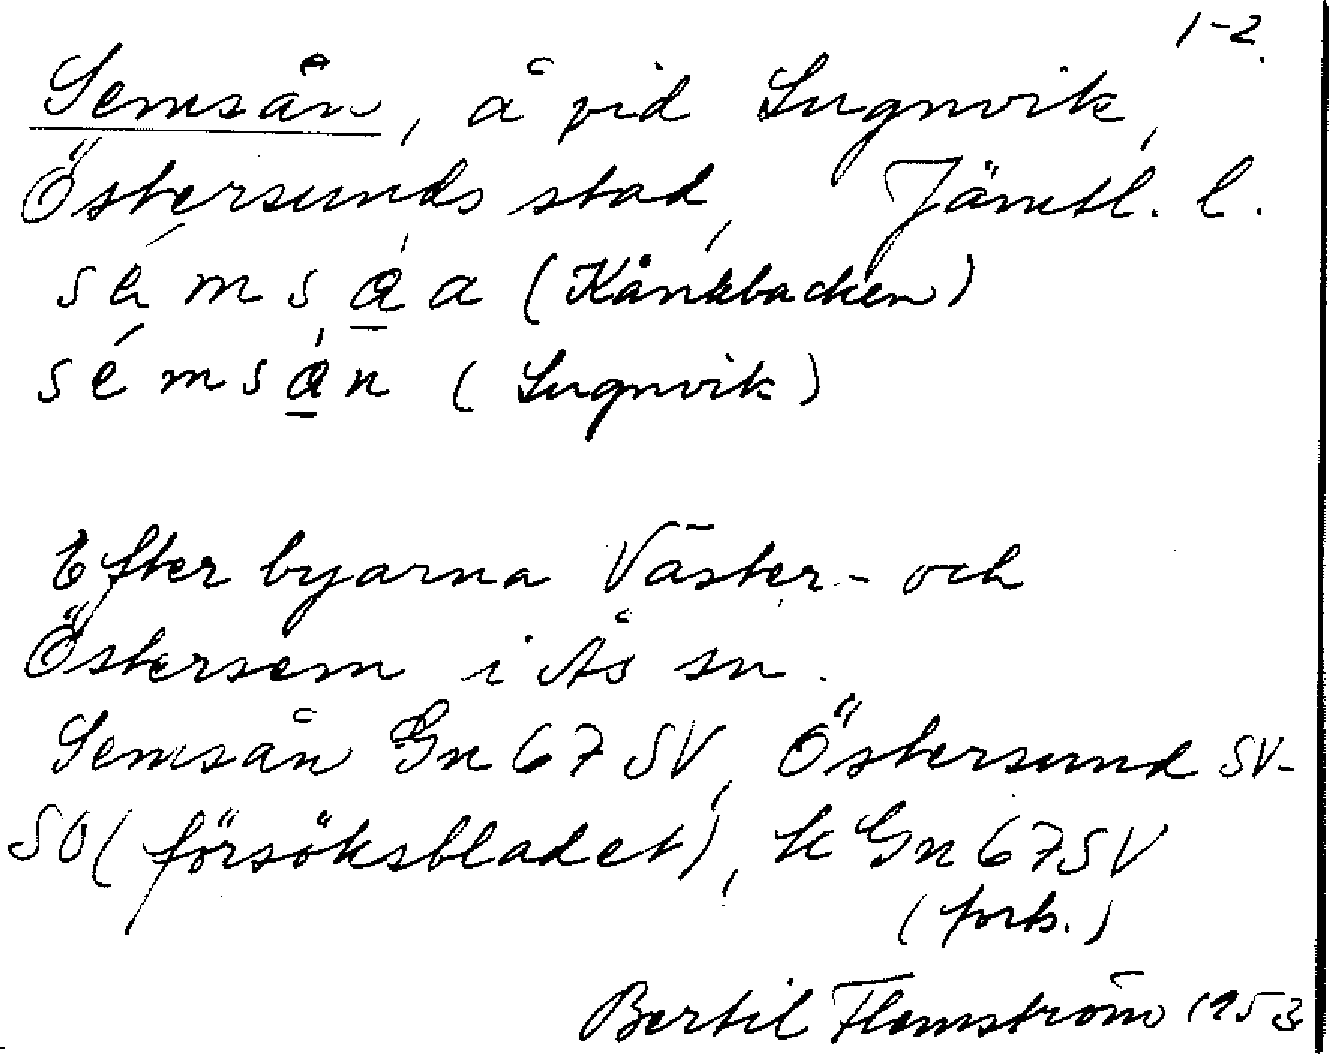 1-2.
Semsån, å vid Lugnvik,
Östersunds stad, Jämtl. l.
sémsåa (Kånkbacken)
sémsån (Lugnvik)
Efter byarna Väster- och
Östersem i Ås sn.
Semsån Gn 67 SV, Östersund SV-
SO (försöksbladet), k Gn 67 SV
(forts.)
Bertil Flemström 1953